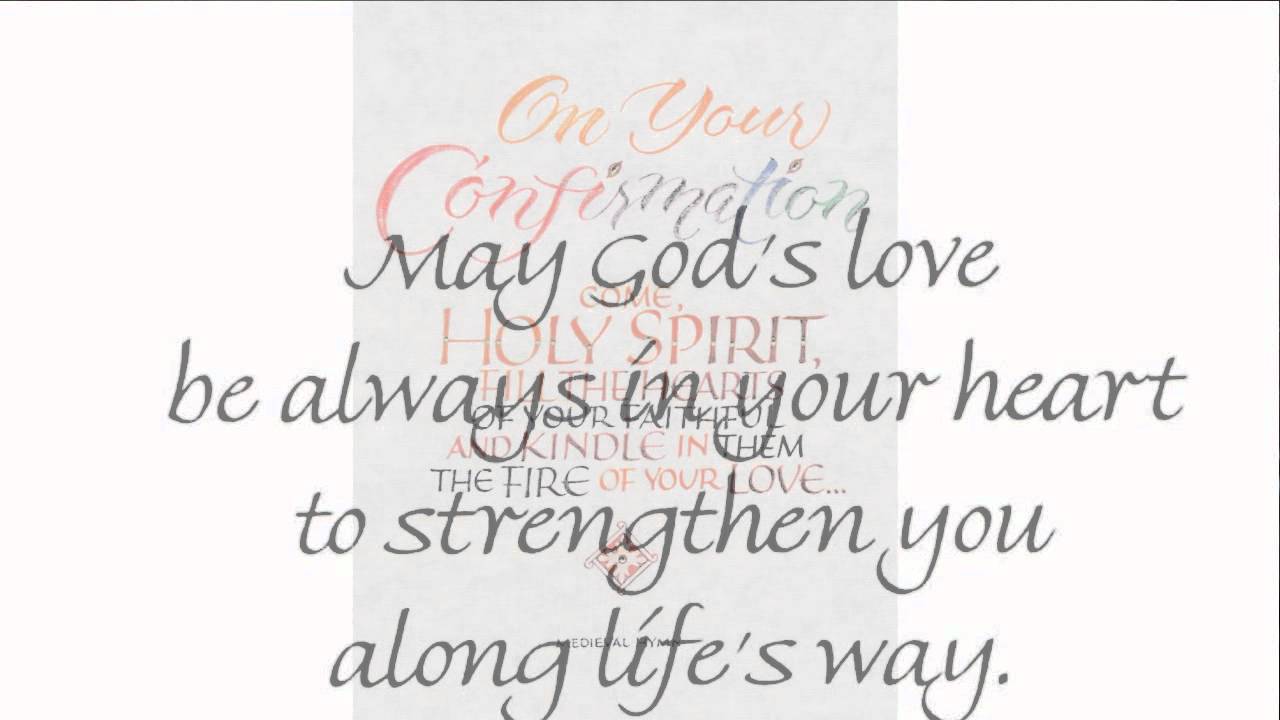 On Your
Confirmation
May God's love
COME,
HOLY SPIRIT,
be always in your heart
FILL THE HEARTS
OF YOUR FAITHFUL
AND KINDLE IN THEM
THE FIRE OF YOUR LOVE...
to strengthen you
MEDIEVAL HYMN
along life's way.